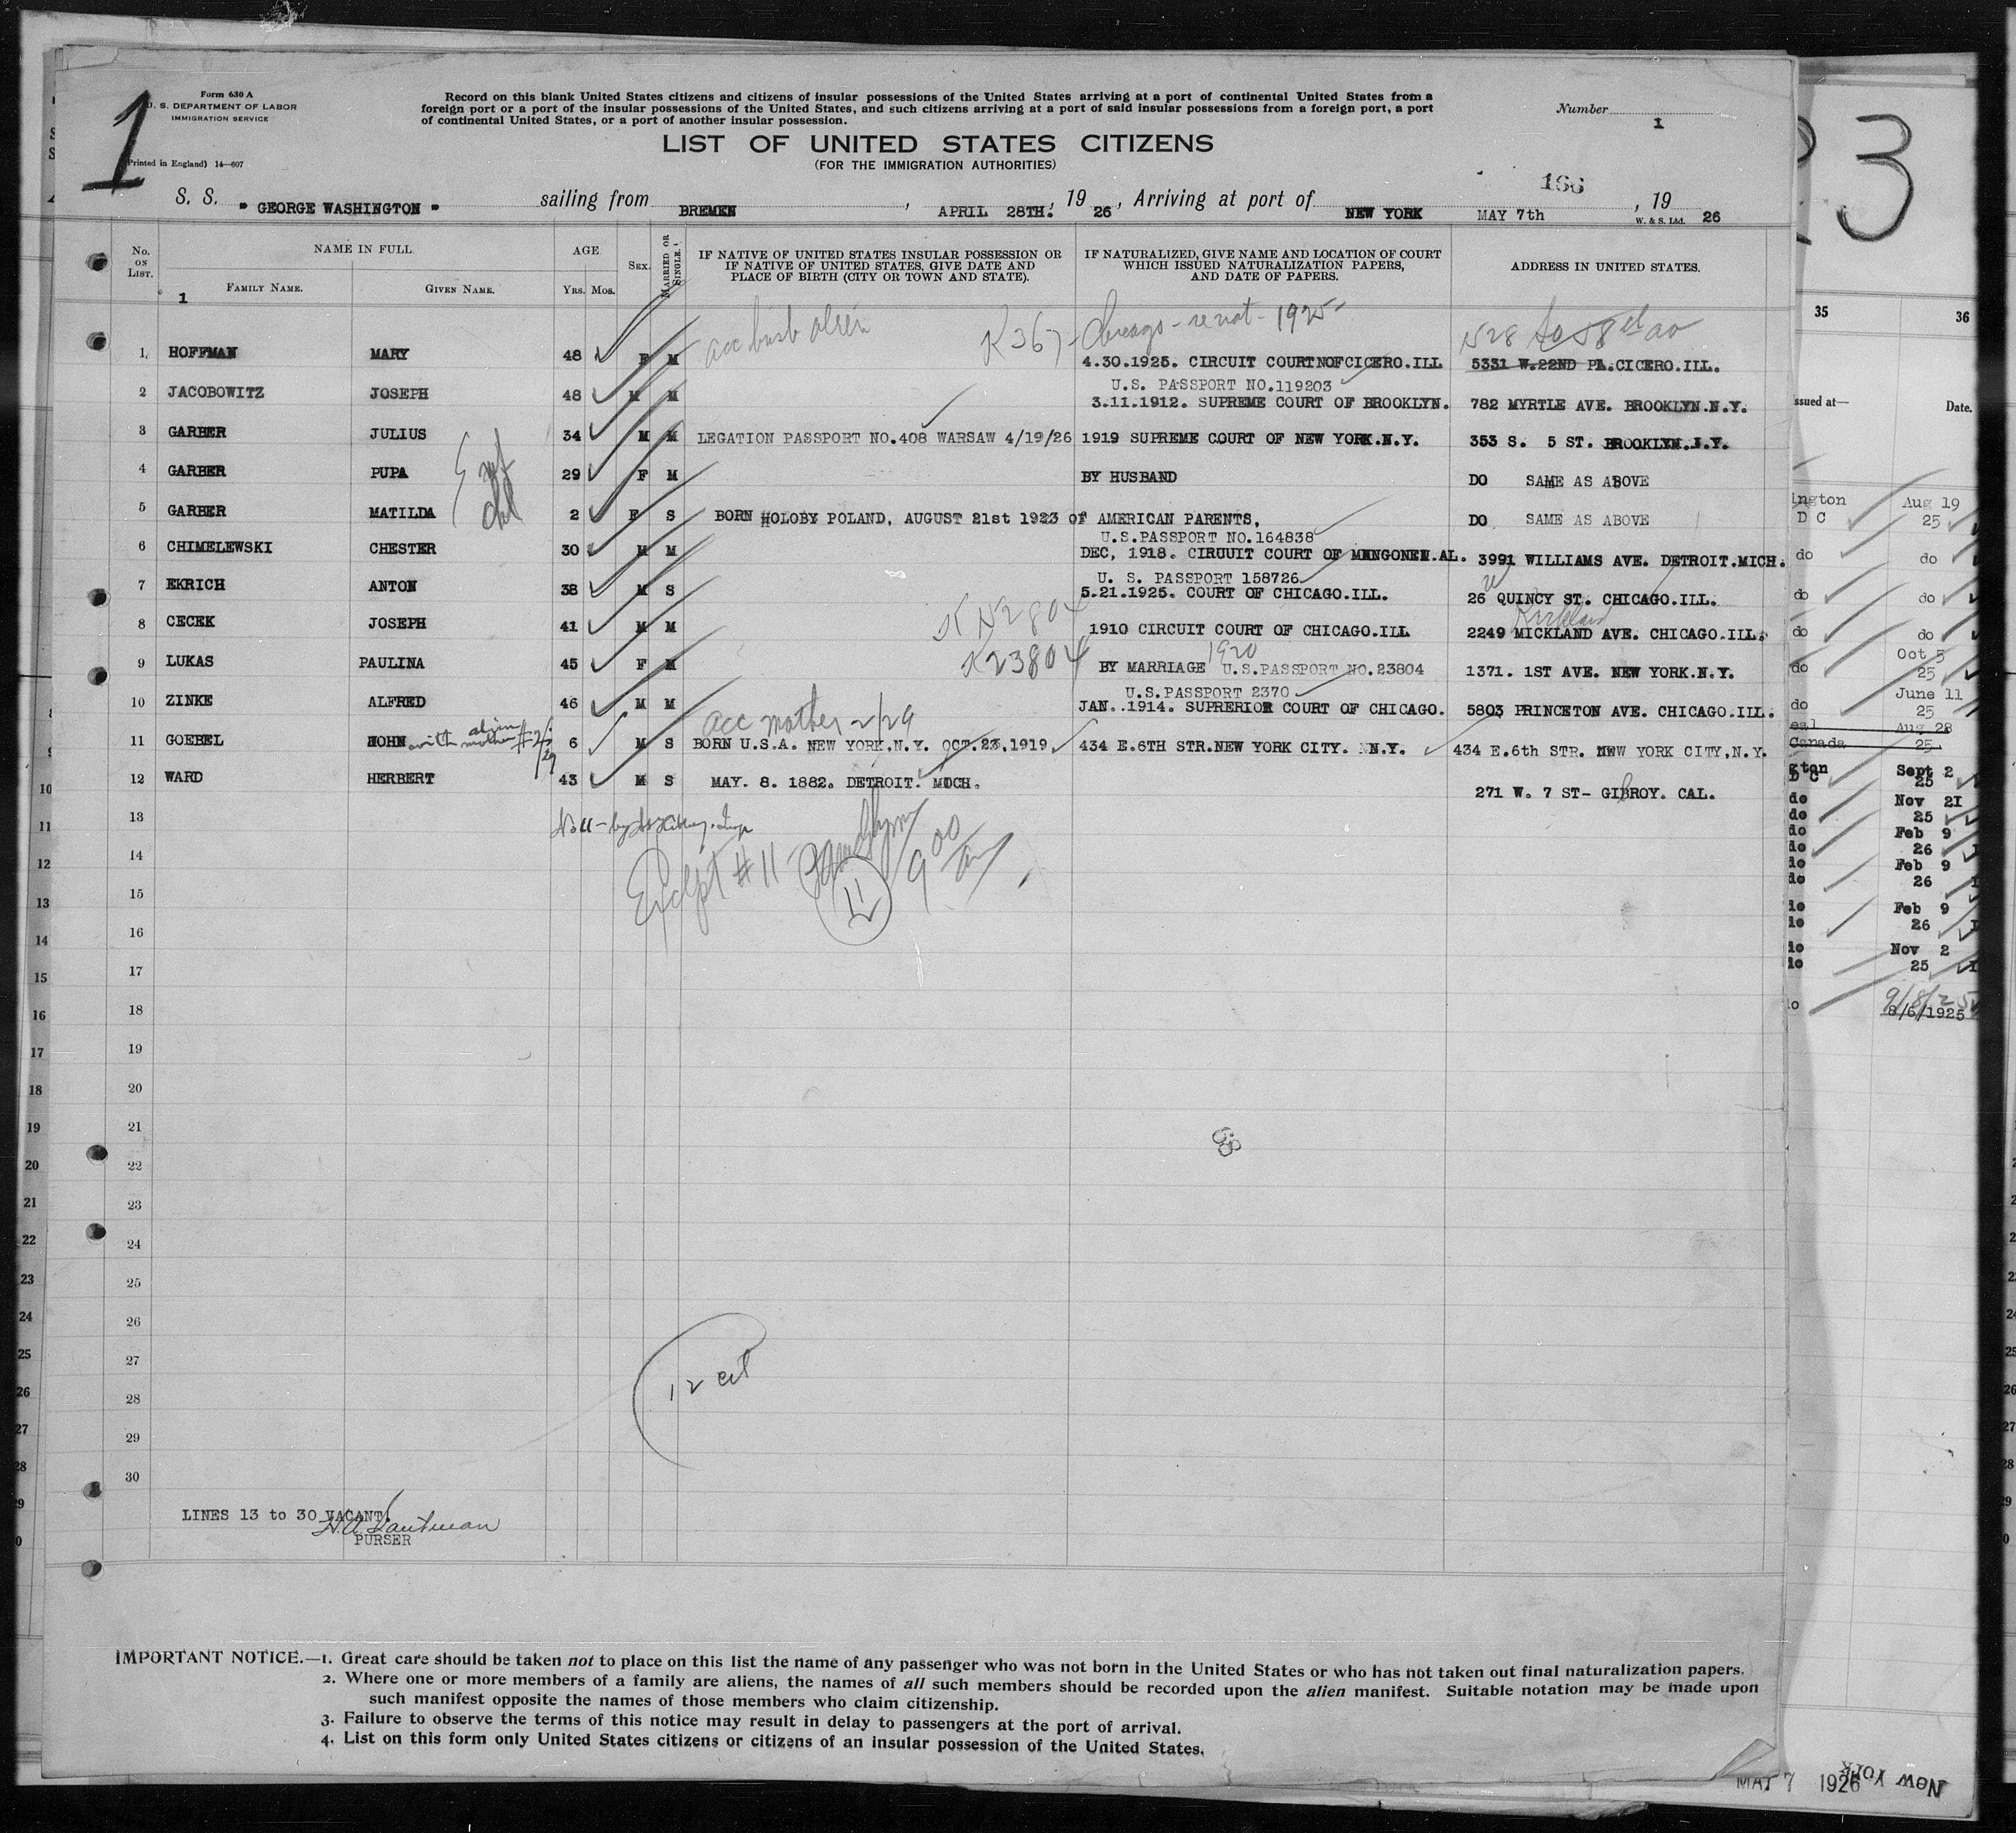 1
Form 630 A
U. S. DEPARTMENT OF LABOR
IMMIGRATION SERVICE
(Printed in England) 14—607
Record on this blank United States citizens and citizens of insular possessions of the United States arriving at a port of continental United States from a
foreign port or a port of the insular possessions of the United States, and such citizens arriving at a port of said insular possessions from a foreign port, a port
of continental United States, or a port of another insular possession.
Number 1
LIST OF UNITED STATES CITIZENS
(FOR THE IMMIGRATION AUTHORITIES)
166
S. S. " GEORGE WASHINGTON " sailing from BREMEN, APRIL 28TH., 19 26, Arriving at port of NEW YORK MAY 7th, 19 26
W. & S. Ltd.
No. ON LIST.
NAME IN FULL.
FAMILY NAME.
GIVEN NAME.
AGE
YRS. MOS.
SEX.
MARRIED OR SINGLE.
IF NATIVE OF UNITED STATES INSULAR POSSESSION OR
IF NATIVE OF UNITED STATES, GIVE DATE AND
PLACE OF BIRTH (CITY OR TOWN AND STATE).
IF NATURALIZED, GIVE NAME AND LOCATION OF COURT
WHICH ISSUED NATURALIZATION PAPERS,
AND DATE OF PAPERS.
ADDRESS IN UNITED STATES.
1
acc husb alien K367- Chicago - 1925 1528 So 58
1 HOFFMAN MARY 48 F M 4.30.1925. CIRCUIT COURTNOFCICERO.ILL 5331 W.22ND PL.CICERO.ILL.
U.S. PASSPORT NO.119203
2 JACOBOWITZ JOSEPH 48 M M 3.11.1912. SUPREME COURT OF BROOKLYN. 782 MYRTLE AVE. BROOKLYN.N.Y.
3 GARBER JULIUS 34 M M LEGATION PASSPORT NO.408 WARSAW 4/19/26 1919 SUPREME COURT OF NEW YORK.N.Y. 353 S. 5 ST. BROOKLYN.N.Y.
4 GARBER PUPA 29 F M BY HUSBAND DO SAME AS ABOVE
5 GARBER MATILDA 2 F S BORN HOLOBY POLAND, AUGUST 21st 1923 OF AMERICAN PARENTS, DO SAME AS ABOVE
U.S.PASSPORT NO.164838
6 CHIMELEWSKI CHESTER 30 M M DEC, 1918. CIRUUIT COURT OF 3991 WILLIAMS AVE. DETROIT.MICH.
U. S. PASSPORT 158726
7 EKRICH ANTON 38 M S 5.21.1925. COURT OF CHICAGO.ILL. 26 W QUINCY ST. CHICAGO.ILL.
Kirkland
8 CECEK JOSEPH 41 M M 1910 CIRCUIT COURT OF CHICAGO.ILL 2249 MICKLAND AVE. CHICAGO.ILL.
1920
9 LUKAS PAULINA 45 F M K23804 BY MARRIAGE U.S.PASSPORT NO.23804 1371. 1ST AVE. NEW YORK.N.Y.
U.S.PASSPORT 2370
10 ZINKE ALFRED 46 M M JAN..1914. SUPRERIOR COURT OF CHICAGO. 5803 PRINCETON AVE. CHICAGO.ILL.
acc mother 2/29
11 GOEBEL JOHN with alien mother 6 M S BORN U.S.A. NEW YORK.N.Y. OCT.23.1919. 434 E.6TH STR.NEW YORK CITY. N.Y. 434 E.6th STR. NEW YORK CITY.N.Y.
12 WARD HERBERT 43 M S MAY. 8. 1882. DETROIT. MICH. 271 W. 7 ST- GILROY. CAL.
13
14
Except #11
9 00 am
11
15
16
17
18
19
20
21
22
23
24
25
26
27
12 cit
28
29
30
LINES 13 to 30 VACANT.
PURSER
IMPORTANT NOTICE.—1. Great care should be taken not to place on this list the name of any passenger who was not born in the United States or who has not taken out final naturalization papers.
2. Where one or more members of a family are aliens, the names of all such members should be recorded upon the alien manifest. Suitable notation may be made upon
such manifest opposite the names of those members who claim citizenship.
3. Failure to observe the terms of this notice may result in delay to passengers at the port of arrival.
4. List on this form only United States citizens or citizens of an insular possession of the United States.
23
35 36
ssued at— Date.
ington Aug 19
D C 25
do do
do do
do do
Oct 5
do 25
June 11
do 25
eal Aug 28
Canada 25
gton Sept 2
D C 25
do Nov 21
do 25
do Feb 9
do 26
do Feb 9
do 26
do Feb 9
do 26
do Nov 2
do 25
9/8/25
do 8/6/1925
MAY 7 1926
New York